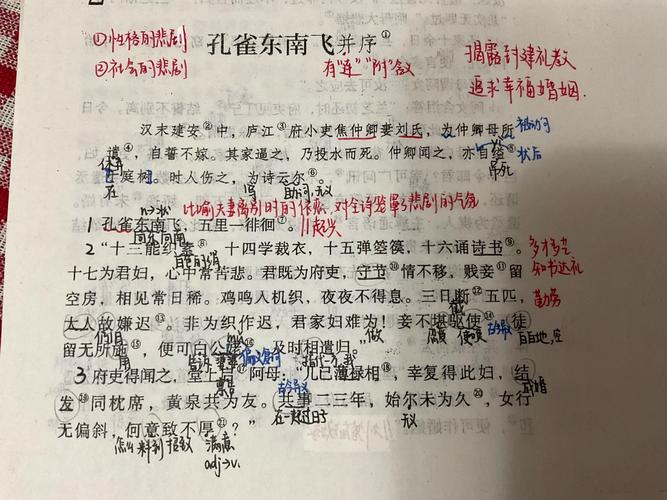 ①性格的悲剧
②社会的悲剧
孔雀东南飞并序①
有"连""附"含义
揭露封建礼教
追求幸福婚姻.
汉末建安②中，庐江③府小吏焦仲卿妻刘氏，为仲卿母所
被动句
遣④，自誓不嫁。其家逼之，乃投水而死。仲卿闻之，亦自缢⑤
状后
休弃
吊死
于庭树。时人伤之，为诗云尔⑥。
在
写
助词,无义
n→状
比喻夫妻离别时的依恋,对全诗笼罩了悲剧的气氛
1孔雀东南飞，五里一徘徊⑦。
起兴
2"十三能织素⑧，十四学裁衣，十五弹箜篌，十六诵诗书⑨。
多才多艺
十七为君妇，心中常苦悲。君既为府吏，守节⑩情不移。贱妾⑪留
知书达礼
空房，相见常日稀。鸡鸣入机织，夜夜不得息。三日断⑫五匹，
勤劳
截
大人故嫌迟⑬。非为织作迟，君家妇难为！妾不堪驱使⑭，徒
做
使唤
古今异义
白白地,空
留无所施⑮，便可白公姥⑯，及时相遣归。"
用
告诉
婆婆
偏义复词
3府吏得闻之，堂上启⑰阿母："儿已薄禄相⑱，幸复得此妇，结
古今异义
成婚
发⑲同枕席，黄泉共为友。共事二三年，始尔未为久⑳，女行
在一起过日子
无义
无偏斜，何意致不厚㉑？"
怎么料到
招致
满意
adj→v.